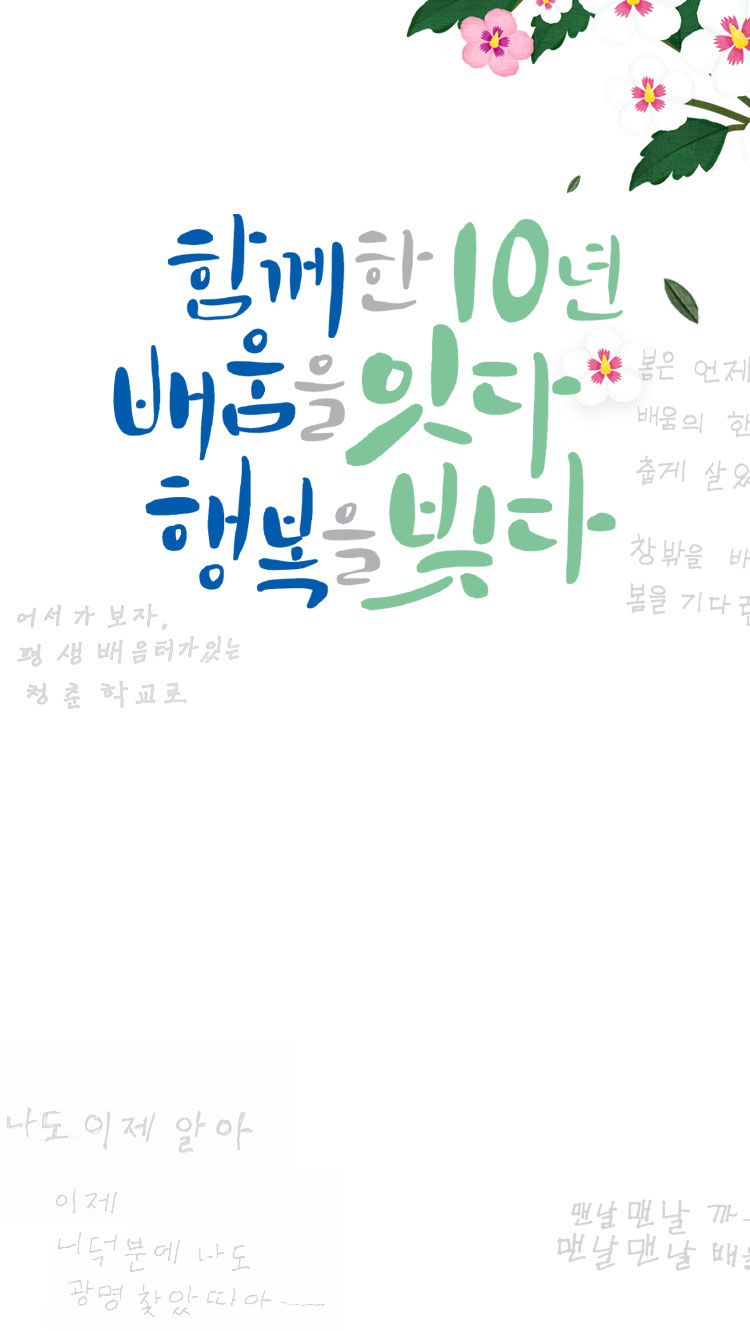 함께한 10년
배움을 잇다
행복을 빚다
봄은 언제
배움의 한
춥게 살았
창밖을 바
봄을 기다린
어서 가 보자.
평생배음터가있는
청춘 학교로
나도 이제 알아
이제
니덕분에 나도
광명 찾았따아~~
맨날 맨날 까
맨날 맨날 배울